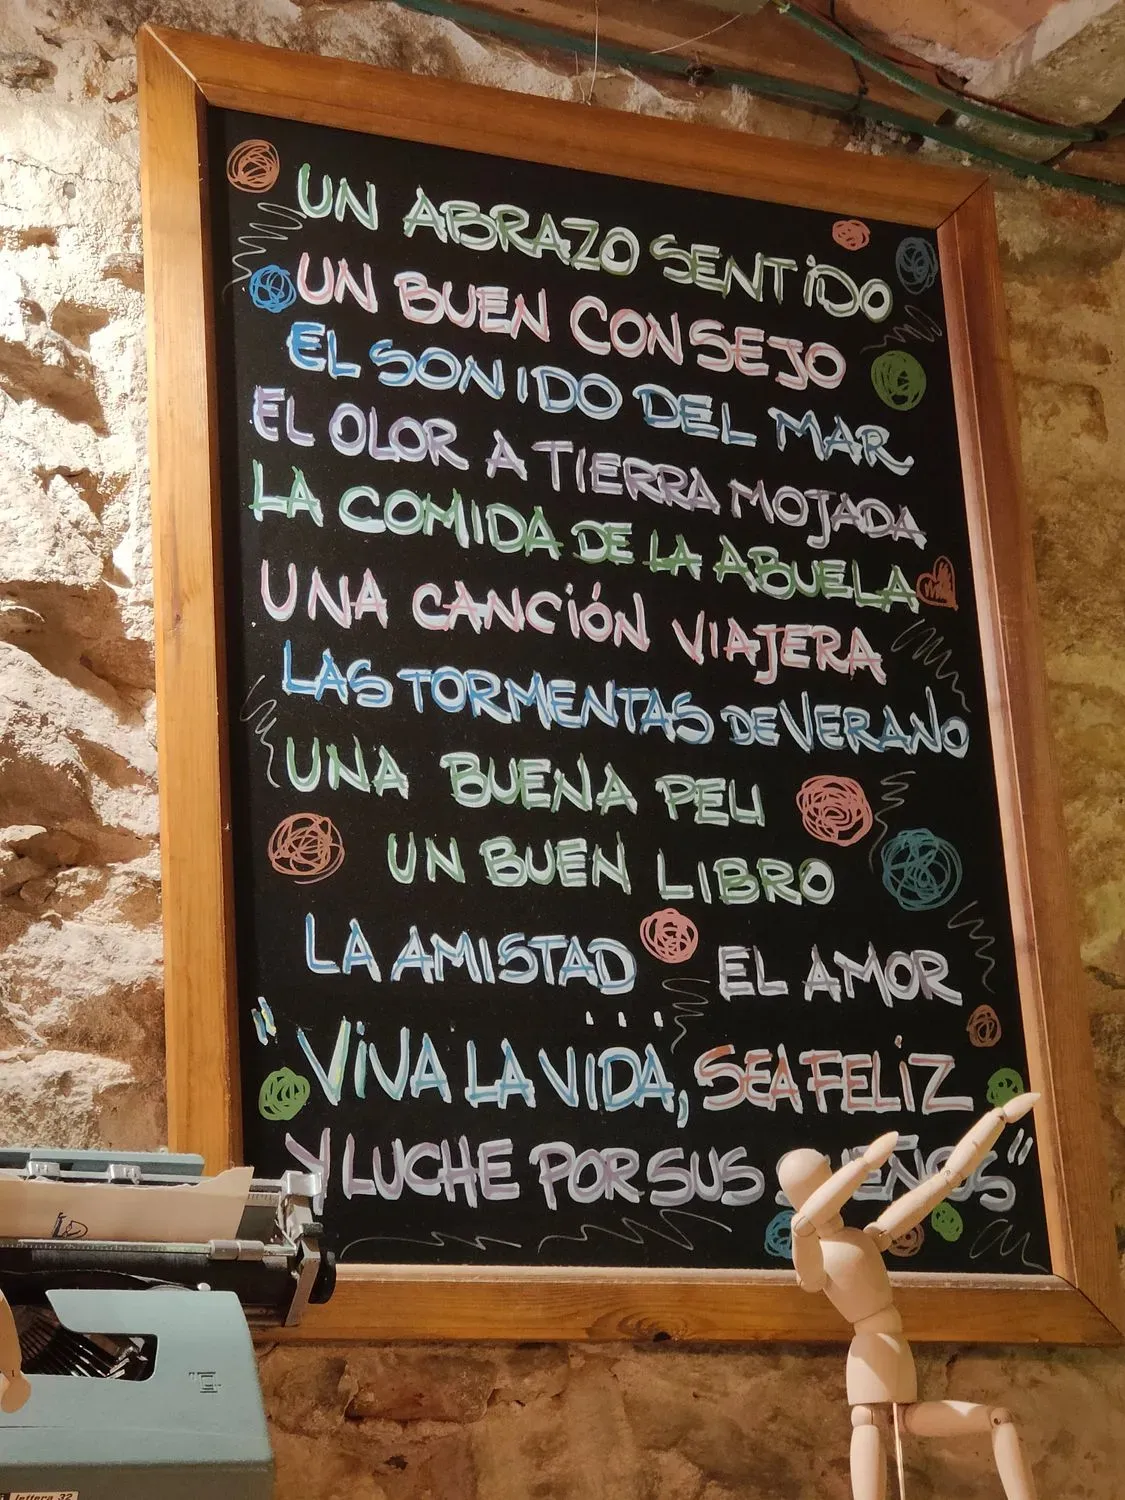 UN ABRAZO SENTIDO
UN BUEN CONSEJO
EL SONIDO DEL MAR
EL OLOR A TIERRA MOJADA
LA COMIDA DE LA ABUELA
UNA CANCIÓN VIAJERA
LAS TORMENTAS DE VERANO
UNA BUENA PELI
UN BUEN LIBRO
LA AMISTAD EL AMOR
...
"VIVA LA VIDA, SEA FELIZ
Y LUCHE POR SUS SUEÑOS"
lettera 32